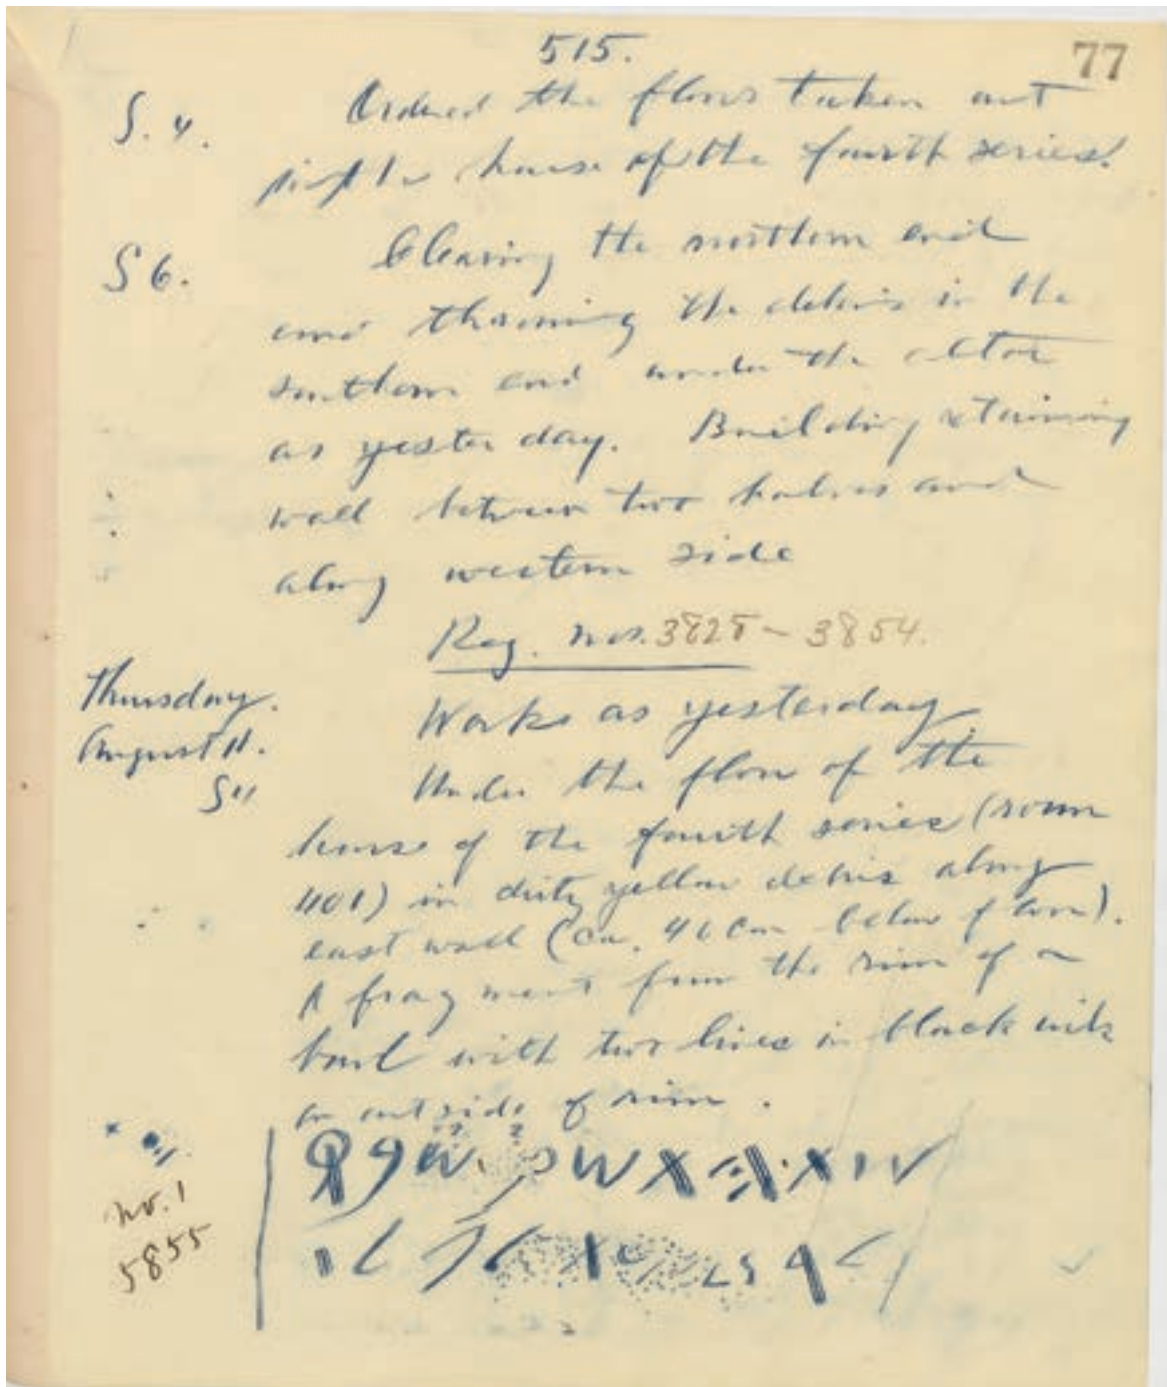 515.
77
S. 4.
Ordered the floors taken out
in the house of the fourth series.
S 6.
Clearing the northern end
and throwing the debris in the
southern end under the altar
as yesterday. Building retaining
wall between two halves and
along western side
Reg. nos. 3828 - 3854.
Thursday.
August 11.
Works as yesterday
S 11
Under the floor of the
house of the fourth series (room
401) in dirty yellow debris along
east wall (ca. 40 cm below floor).
A fragment from the rim of a
bowl with two lines in black ink
on outside of rim.
no. 1
3855